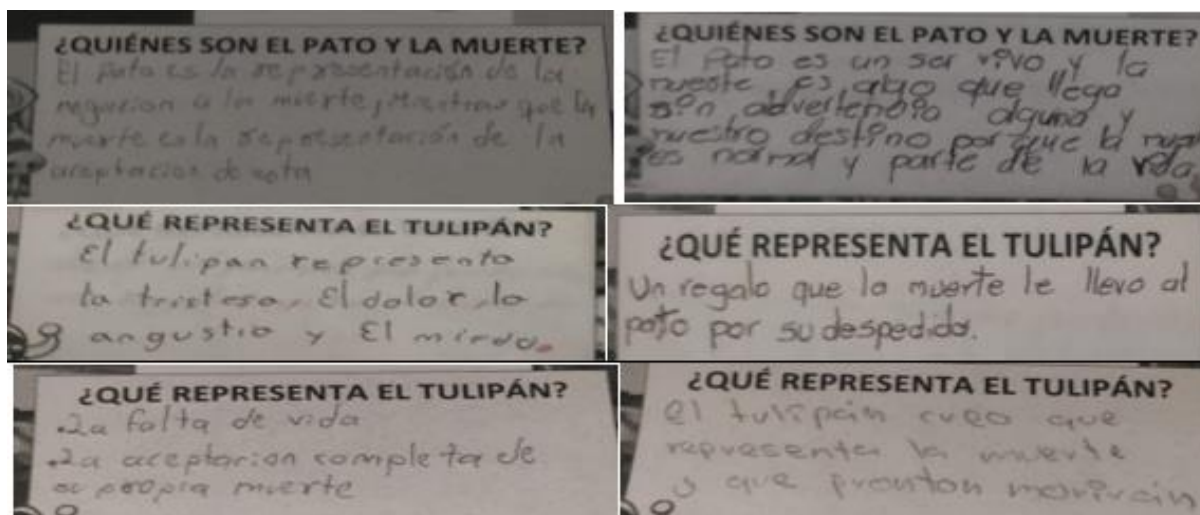 ¿QUIÉNES SON EL PATO Y LA MUERTE?
El pato es la representación de la
negacion a la muerte, mientras que la
muerte es la representación de la
aceptacion de esta
¿QUIÉNES SON EL PATO Y LA MUERTE?
El Pato es un ser vivo y la
mueste es algo que llega
sin advertencia alguna y
nuestro destino porque la
es normal y parte de la vida
¿QUÉ REPRESENTA EL TULIPÁN?
El tulipan representa
la tristesa, El dolor, la
angustia y El miedo.
¿QUÉ REPRESENTA EL TULIPÁN?
Un regalo que la muerte le llevo al
pato por su despedida.
¿QUÉ REPRESENTA EL TULIPÁN?
.La falta de vida
.La aceptacion completa de
su propia muerte
¿QUÉ REPRESENTA EL TULIPÁN?
el tulipán creo que
representa la muerte
y que pronton morirán